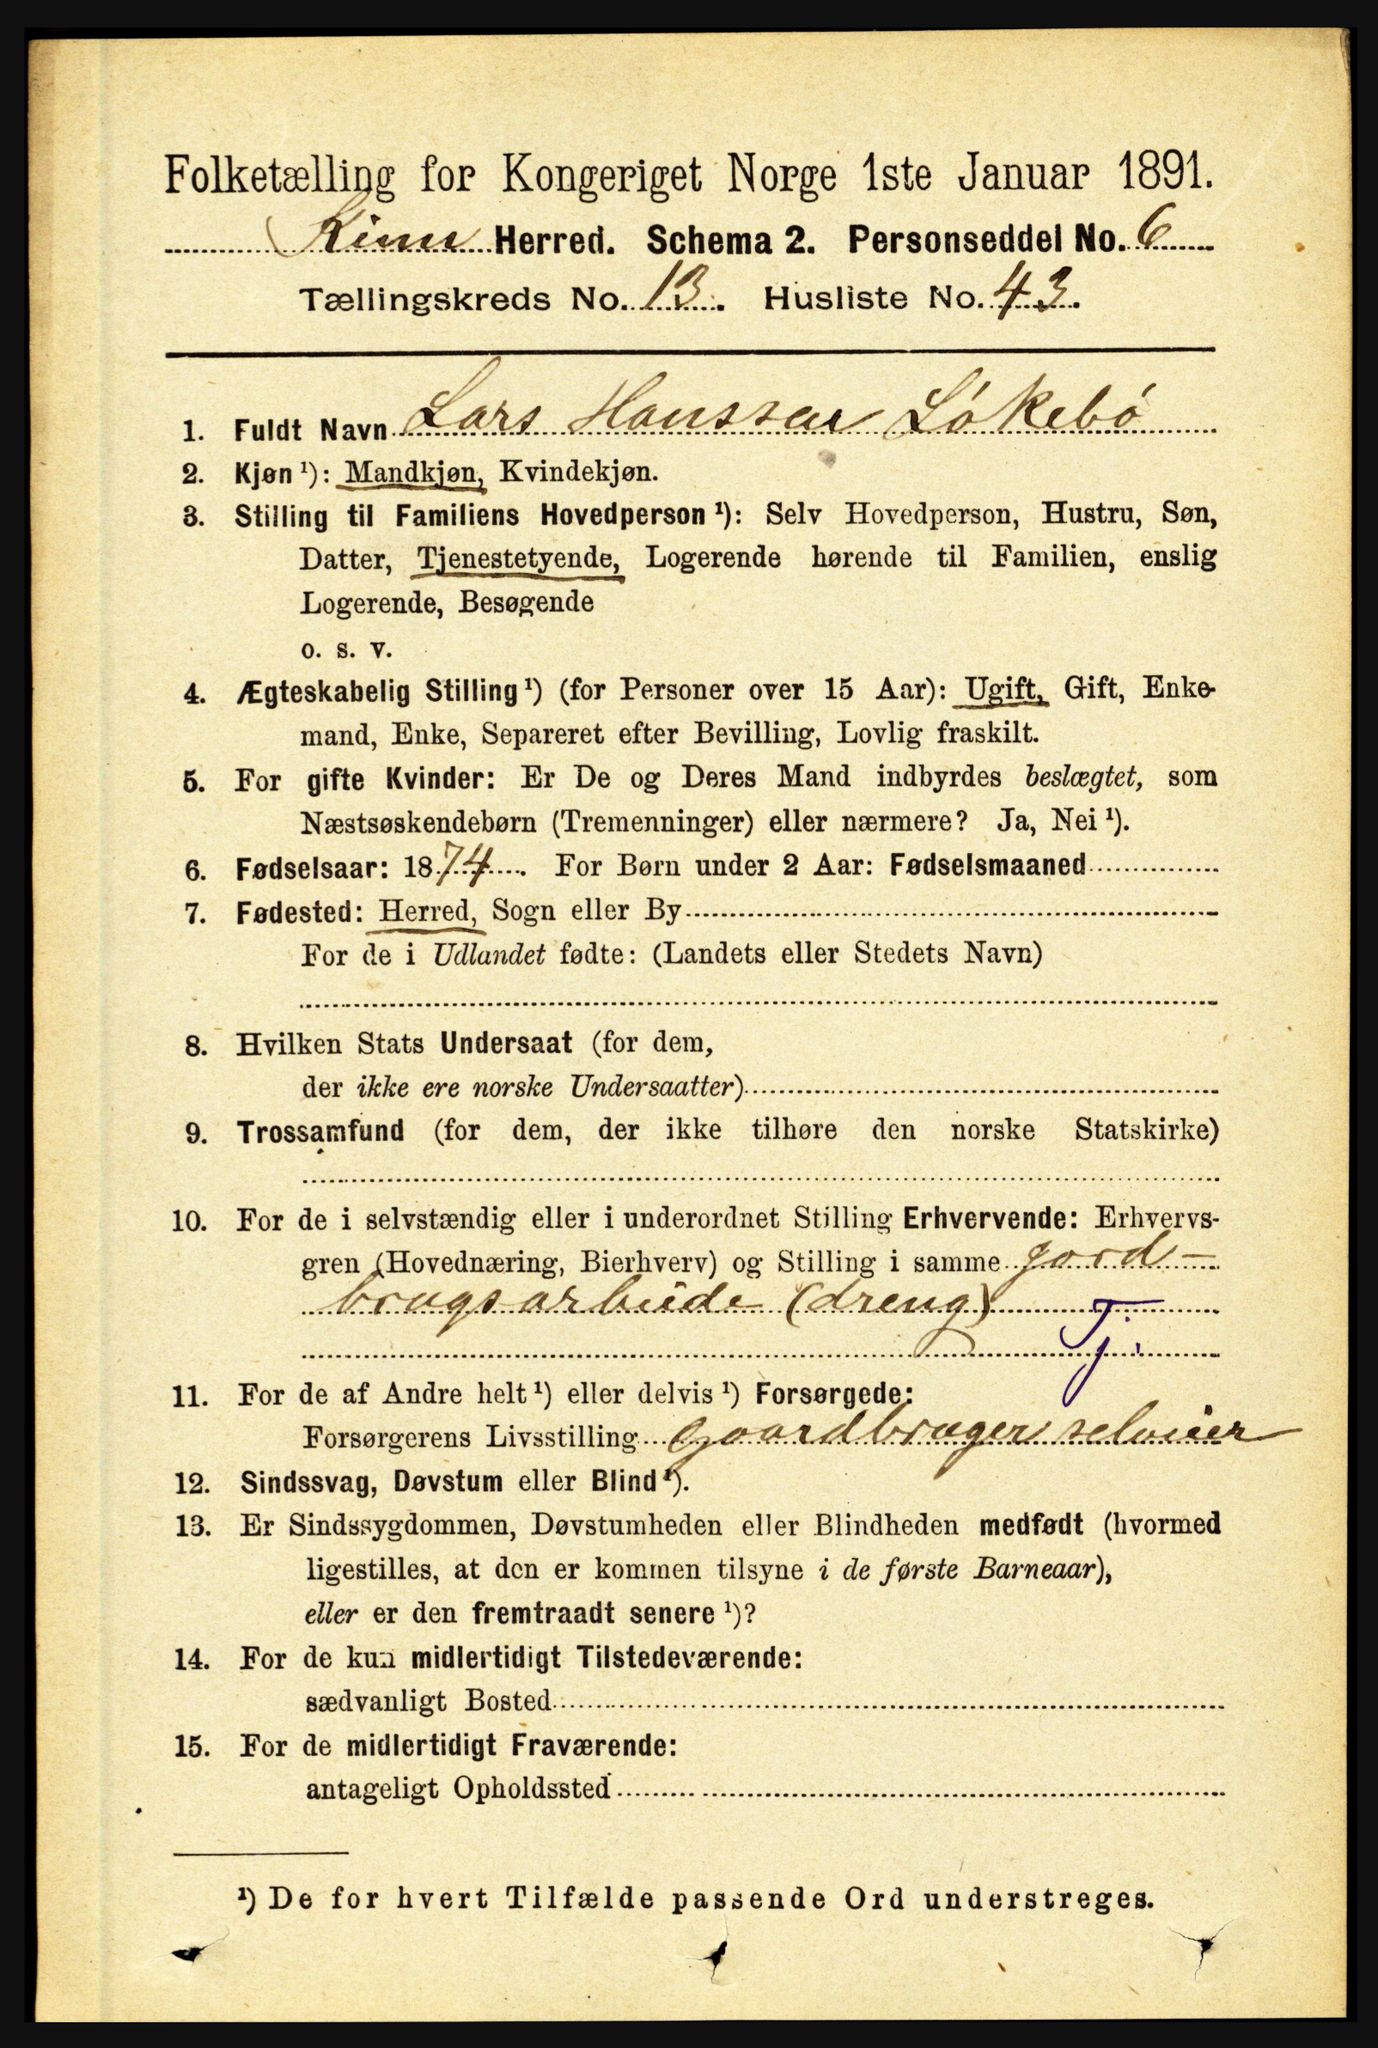 Folketælling for Kongeriget Norge 1ste Januar 1891.
Kinn Herred. Schema 2. Personseddel No. 6
Tællingskreds No. 13. Husliste No. 43.
1. Fuldt Navn Lars Hanssen Løkebø
2. Kjøn ¹): Mandkjøn, Kvindekjøn.
3. Stilling til Familiens Hovedperson ¹): Selv Hovedperson, Hustru, Søn,
Datter, Tjenestetyende, Logerende hørende til Familien, enslig
Logerende, Besøgende
o. s. v.
4. Ægteskabelig Stilling ¹) (for Personer over 15 Aar): Ugift, Gift, Enke-
mand, Enke, Separeret efter Bevilling, Lovlig fraskilt.
5. For gifte Kvinder: Er De og Deres Mand indbyrdes beslægtet, som
Næstsøskendebørn (Tremenninger) eller nærmere? Ja, Nei ¹).
6. Fødselsaar: 1874. For Børn under 2 Aar: Fødselsmaaned
7. Fødested: Herred, Sogn eller By
For de i Udlandet fødte: (Landets eller Stedets Navn)
8. Hvilken Stats Undersaat (for dem,
der ikke ere norske Undersaatter)
9. Trossamfund (for dem, der ikke tilhøre den norske Statskirke)
10. For de i selvstændig eller i underordnet Stilling Erhvervende: Erhvervs-
gren (Hovednæring, Bierhverv) og Stilling i samme gord-
brugsarbeide (dreng)
Tj.
11. For de af Andre helt ¹) eller delvis ¹) Forsørgede:
Forsørgerens Livsstilling gaardbruger selveier
12. Sindssvag, Døvstum eller Blind ¹).
13. Er Sindssygdommen, Døvstumheden eller Blindheden medfødt (hvormed
ligestilles, at den er kommen tilsyne i de første Barneaar),
eller er den fremtraadt senere ¹)?
14. For de kun midlertidigt Tilstedeværende:
sædvanligt Bosted
15. For de midlertidigt Fraværende:
antageligt Opholdssted
¹) De for hvert Tilfælde passende Ord understreges.